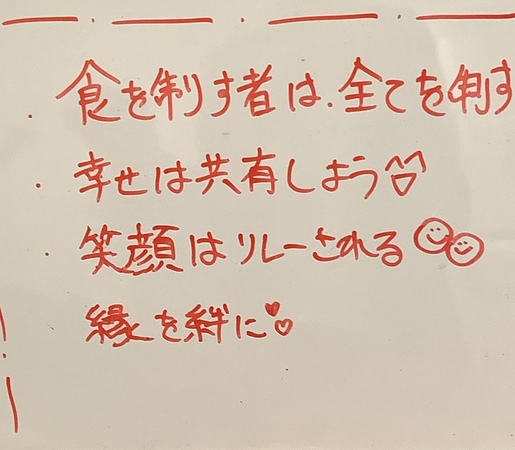 食を制す者は、全てを制す
幸せは共有しよう
笑顔はリレーされる
縁を絆に